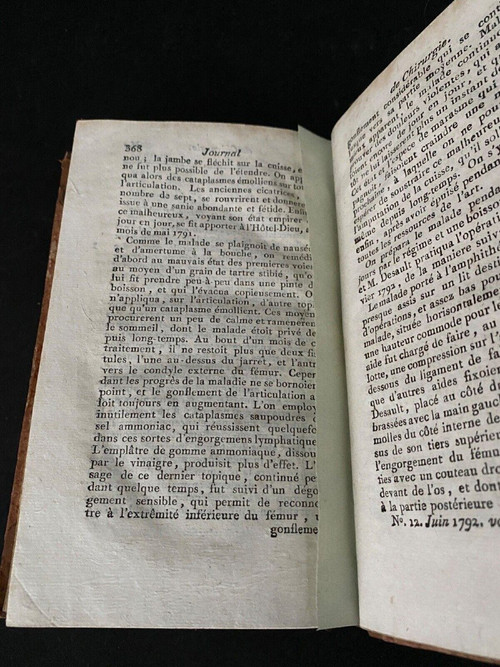 368 Journal
nou ; la jambe se fléchit sur la cuisse, e
ne fut plus possible de l'étendre. On app
qua alors des cataplasmes émolliens sur tou
l'articulation. Les anciennes cicatrices,
nombre de sept, se rouvrirent et donnère
issue à une sanie abondante et fétide. Enfin
ce malheureux, voyant son état empirer
jour en jour, se fit apporter à l'Hôtel-Dieu, a
mois de mai 1791.
Comme le malade se plaignoit de nausée
et d'amertume à la bouche, on remédi
d'abord au mauvais état des premières voies
au moyen d'un grain de tartre stibié, qu'o
lui fit prendre peu-à-peu dans une pinte d
boisson, et qui l'évacua copieusement. O
n'appliqua, sur l'articulation, d'autre top
que qu'un cataplasme émollient. Ces moyen
procurèrent un peu de calme et ramenèren
le sommeil, dont le malade étoit privé de
puis long-temps. Au bout d'un mois de c
traitement, il ne restoit plus que deux fis
tules, l'une au-dessus du jarret, et l'autr
vers le condyle externe du fémur. Cepen
dant les progrès de la maladie ne se bornoient
point, et le gonflement de l'articulation a
loit toujours en augmentant. L'on employ
inutilement les cataplasmes saupoudrés d
sel ammoniac, qui réussissent quelquefo
dans ces sortes d'engorgemens lymphatique
L'emplâtre de gomme ammoniaque, dissou
par le vinaigre, produisit plus d'effet. L'
sage de ce dernier topique, continué pe
dant quelque temps, fut suivi d'un dégo
gement sensible, qui permit de reconno
tre à l'extrêmité inférieure du fémur, u
gonfleme
de Chirurgie,
gonflement considérable qui se con
vers sa partie moyenne. Ma
le malade continu
en jour, et
plus un instant
marasme qu
craindre une
l'espèce de
à laquelle on
de soustraire ce malheure
l'amputation de la cuisse, qu'il s
mais depuis long-temps. On s'
après avoir épuisé pendan
toutes les ressources de l'art.
On prépara le malade pend
jours par le régime et une boisson
et M. Desault pratiqua l'opération
vier 1792, de la manière suiv
Le malade porté à l'amphith
presque assis sur un lit dest
d'opérations, et assez bas pou
malade, située horisontaleme
une hauteur commode pour l
aide fut chargé de faire, au
lotte, une compression sur l'
dessous du ligament de fa
que d'autres aides fixoie
Desault, placé au côté d
brassées avec la main gauch
molles du côté interne de
sus de son tiers supérieur
l'engorgement du fému
ties avec un couteau dro
devant de l'os, et dont
à la partie postérieure
No. 12. Juin 1792. vo